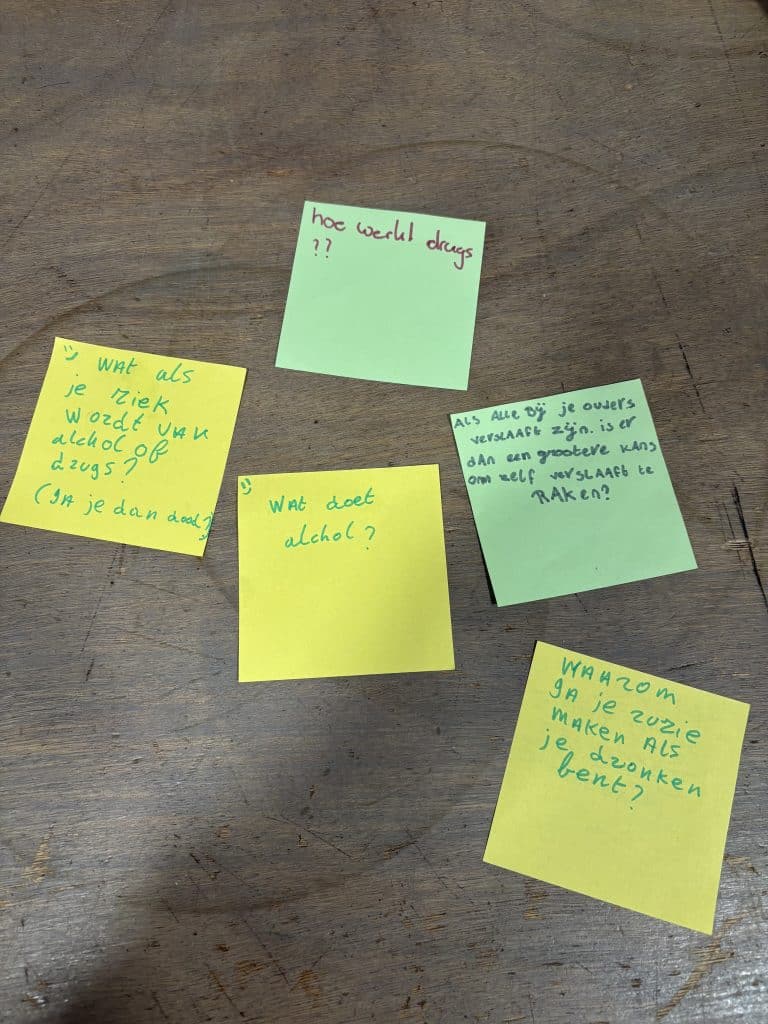 hoe werkt drugs
??
WAT als
je ziek
wordt VAN
alchol of
dzugs?
(GA je dan dood?)
WAT doet
alchol?
ALS ALLE Bij je ouders
verslAAft zijn. is er
dAn een grootere kAns
om zelf verslAAft te
RAken?
WAAzom
GA je zuzie
mAken Als
je dzonken
bent?